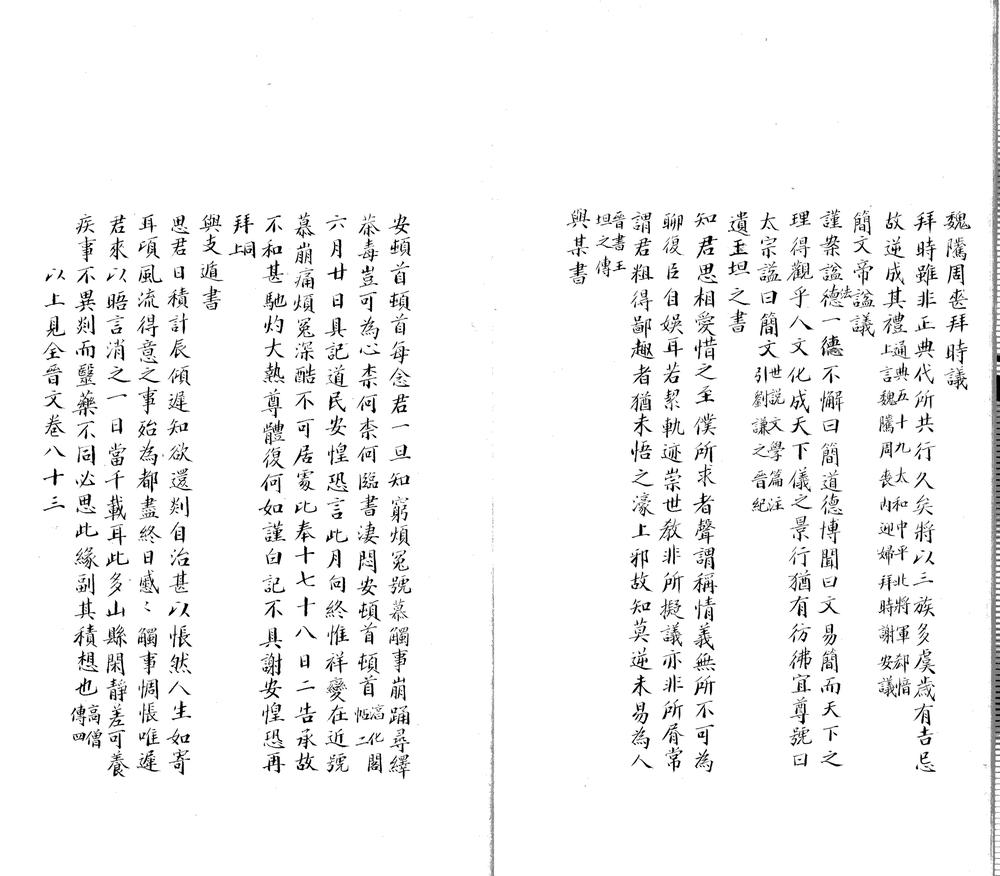 魏騰周喪拜時議
拜時雖非正典代所共行久矣將以三族多虞歲有吉忌
故逆成其禮通典五十九太和中平北將軍郄愔上言魏騰周喪內迎婦拜時謝安議
簡文帝諡議
謹案諡法一德不懈曰簡道德博聞曰文易簡而天下之
理得觀乎人文化成天下儀之景行猶有彷彿宜尊號曰
太宗諡曰簡文世說文學篇注引劉謙之晉紀
遺王坦之書
知君思相愛惜之至僕所求者聲謂稱情義無所不可為
聊復臣自娛耳若絜軌迹崇世教非所擬議亦非所屑常
謂君粗得鄙趣者猶未悟之濠上邪故知莫逆未易為人
晉書王坦之傳
與某書
安頓首頓首每念君一旦知窮煩冤號慕觸事崩踊尋繹
荼毒豈可為心柰何柰何臨書淒悶安頓首頓首淳化閣帖二
六月廿日具記道民安惶恐言此月向終惟祥變在近號
慕崩痛煩冤深酷不可居處比奉十七十八日二告承故
不和甚馳灼大熱尊體復何如謹白記不具謝安惶恐再
拜上同
與支遁書
思君日積計辰傾遲知欲還剡自治甚以悵然人生如寄
耳頃風流得意之事殆為都盡終日慼〻觸事惆悵唯遲
君來以晤言消之一日當千載耳此多山縣閑靜差可養
疾事不異剡而醫藥不同必思此緣副其積想也高僧傳四
以上見全晉文卷八十三